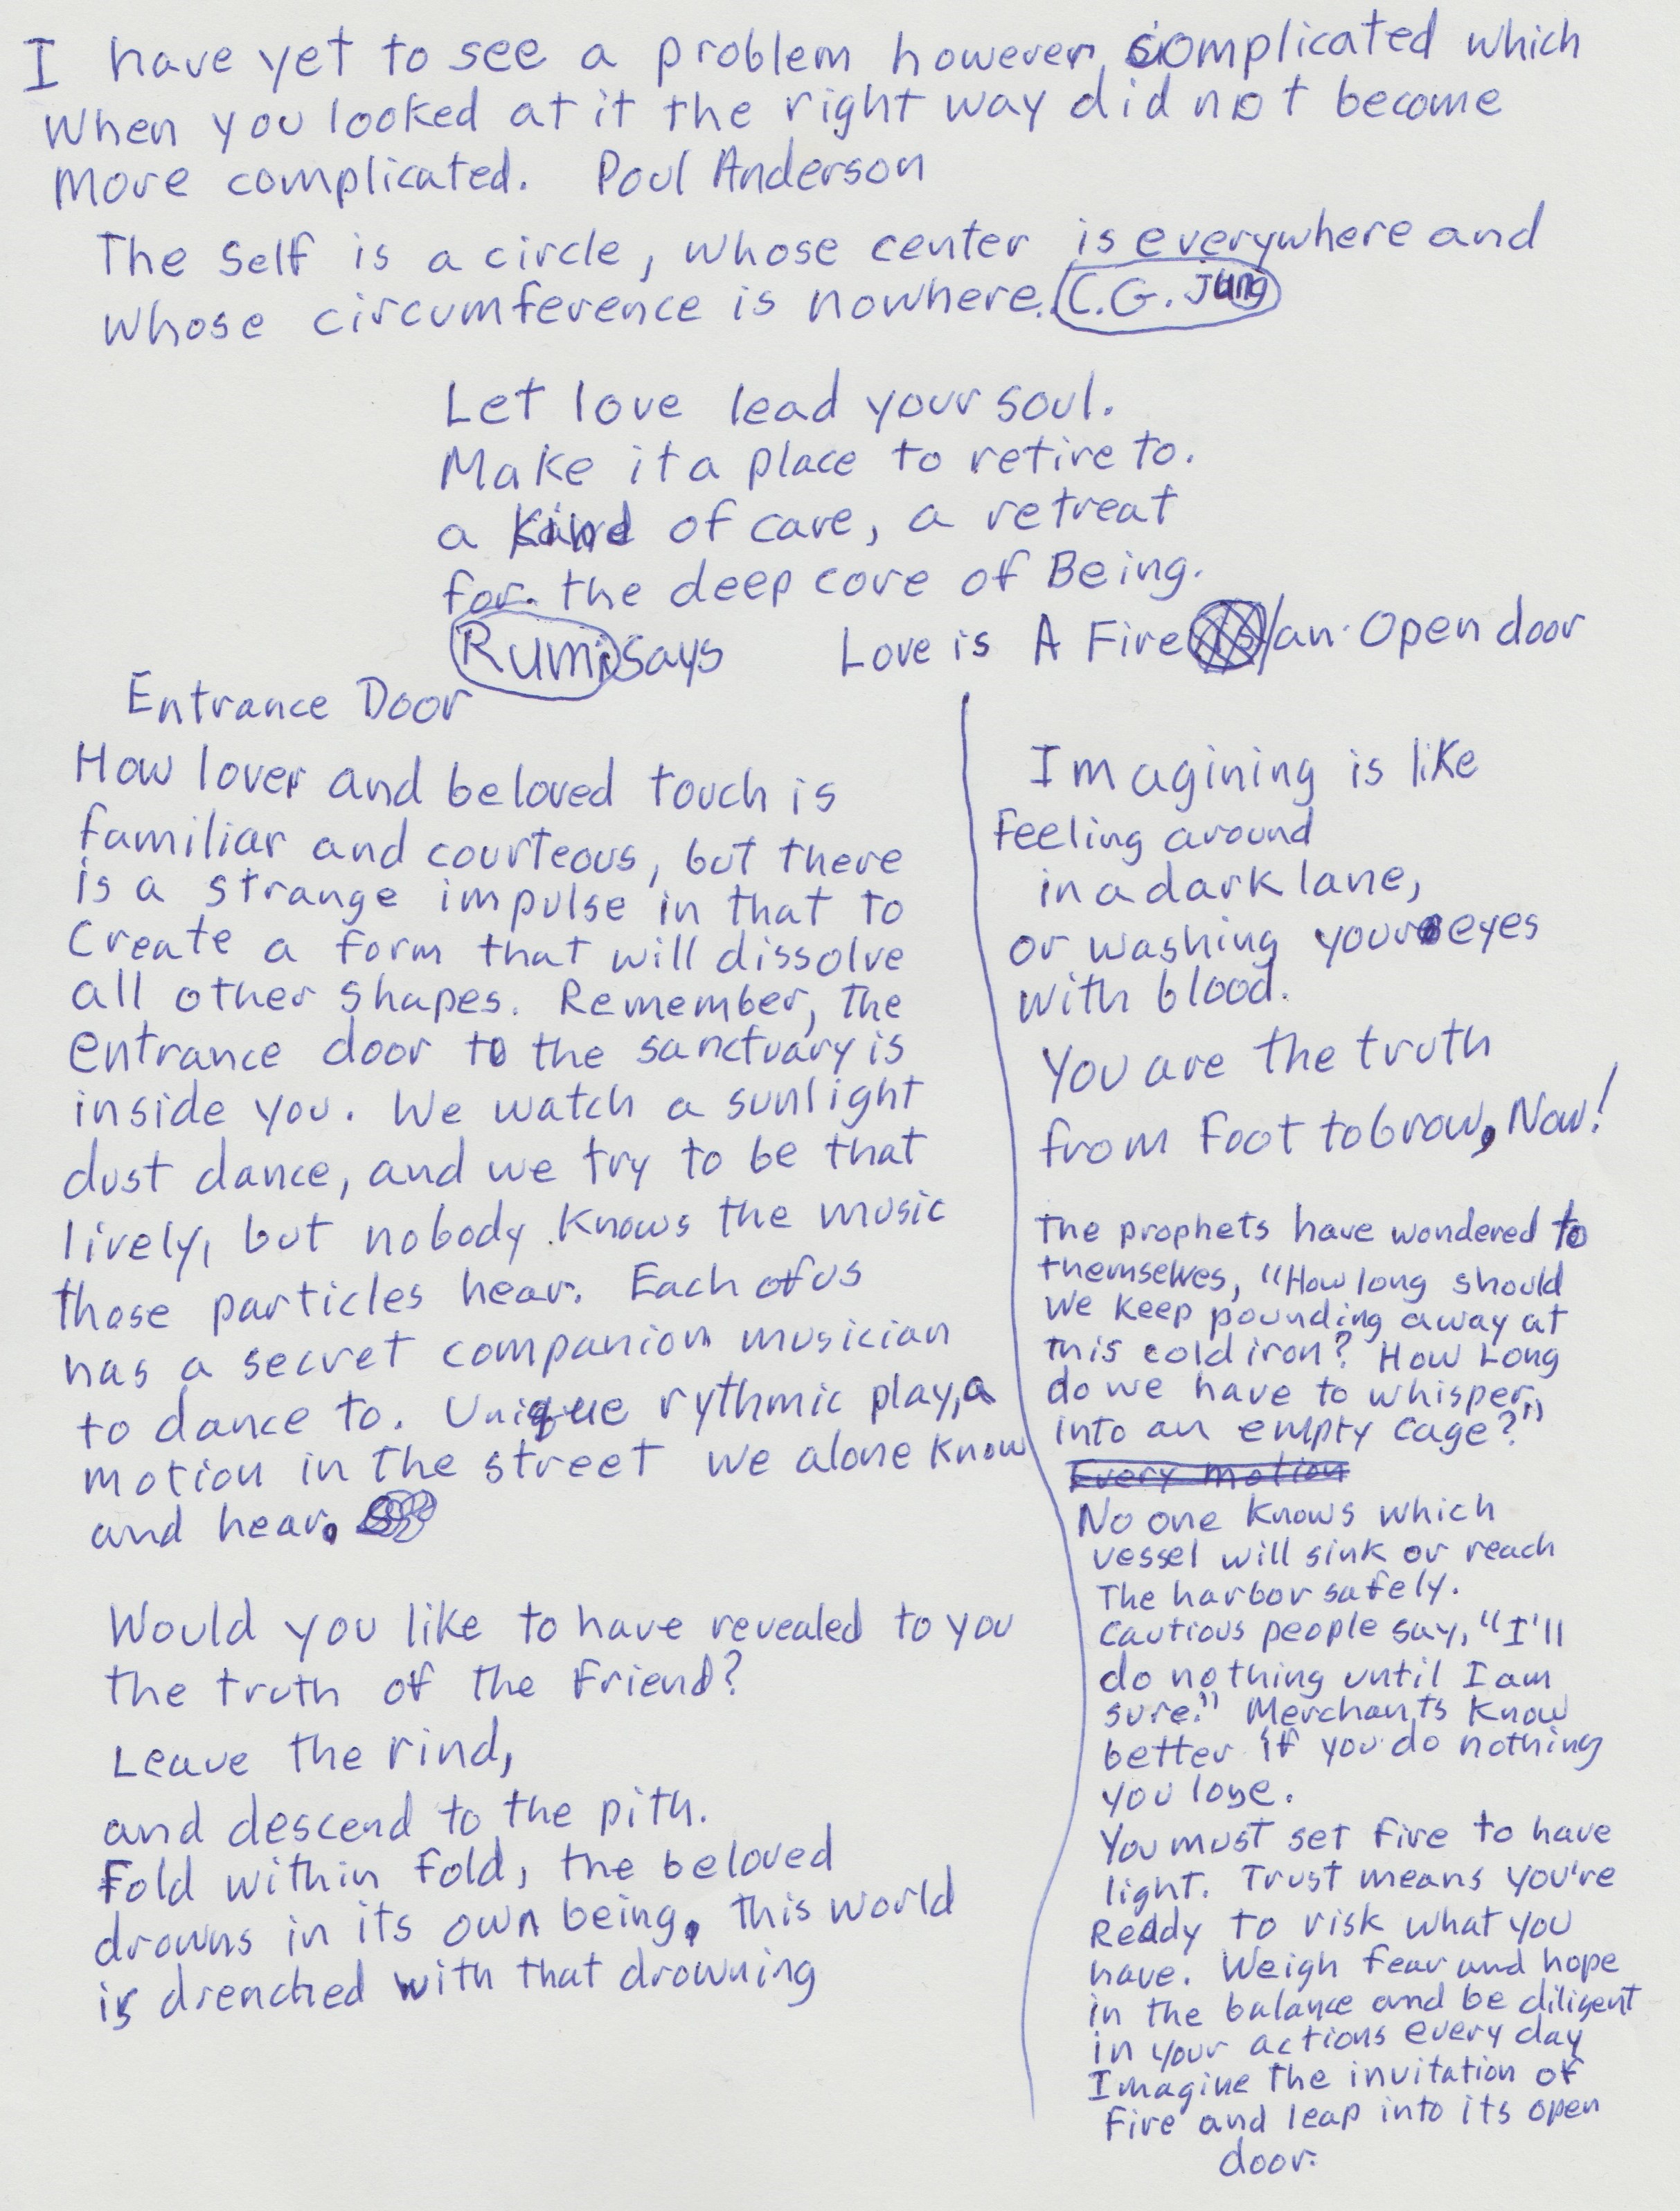 I have yet to see a problem however complicated which
When you looked at it the right way did not become
more complicated. Poul Anderson
The Self is a circle, whose center is everywhere and
whose circumference is nowhere. C.G. Jung
Let love lead your soul.
Make it a place to retire to.
a kind of cave, a retreat
for the deep core of Being.
Rumi says Love is A Fire /an Open door
Entrance Door
How lover and beloved touch is
familiar and courteous, but there
is a strange impulse in that to
Create a form that will dissolve
all other shapes. Remember, the
entrance door to the sanctuary is
inside you. We watch a sunlight
dust dance, and we try to be that
lively, but nobody knows the music
those particles hear. Each of us
has a secret companion musician
to dance to. Unique rythmic play, a
motion in the street we alone know
and hear.
Would you like to have revealed to you
the truth of the Friend?
Leave the rind,
and descend to the pith.
Fold within fold, the beloved
drowns in its own being, this world
is drenched with that drowning
Imagining is like
Feeling around
in a dark lane,
or washing your eyes
with blood.
You are the truth
from Foot to brow, Now!
The prophets have wondered to
themselves, "How long should
we keep pounding away at
this cold iron? How Long
do we have to whisper,
into an empty cage?"
Every motion
No one knows which
vessel will sink or reach
The harbor safely.
Cautious people say, "I'll
do nothing until I am
sure." Merchants know
better if you do nothing
you lose.
You must set fire to have
light. Trust means you're
Ready to risk what you
have. Weigh fear and hope
in the balance and be diligent
in your actions every day
Imagine the invitation of
Fire and leap into its open
door.